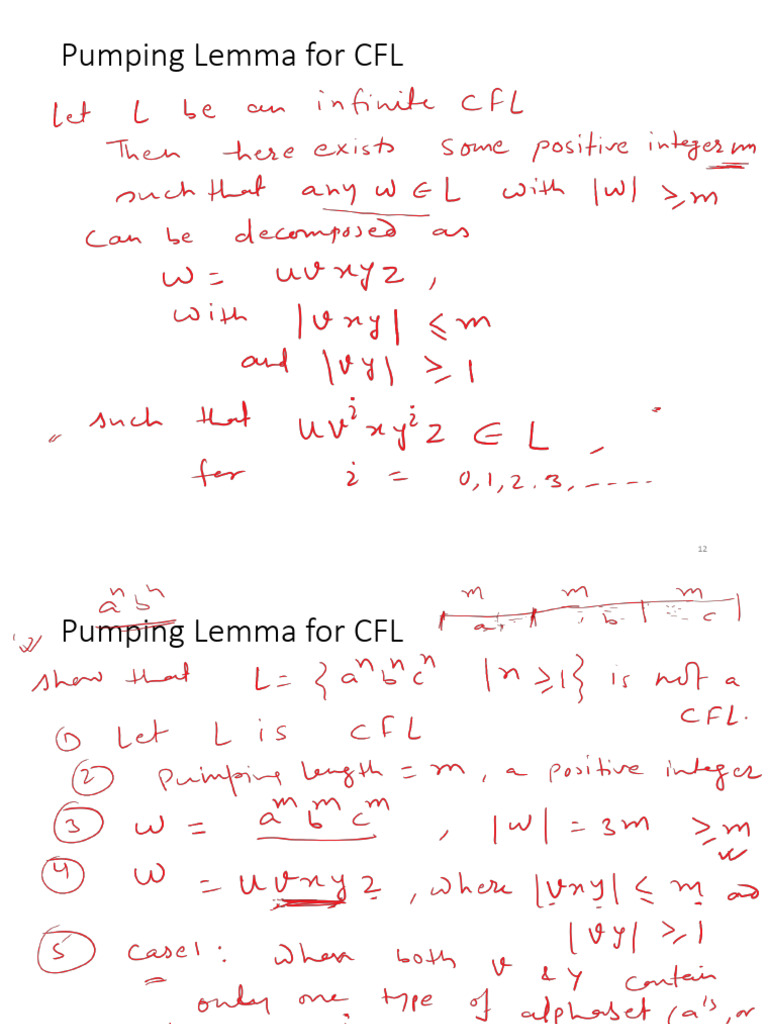 Pumping Lemma for CFL
Let L be an infinite CFL
Then there exists some positive integer m
such that any w ∈ L with |w| ≥ m
can be decomposed as
w = uvxyz,
with |vxy| ≤ m
and |vy| ≥ 1
such that uvⁱxyⁱz ∈ L,
for i = 0,1,2.3,-----
12
aⁿbⁿ
m m m
a b c
Pumping Lemma for CFL
Show that L = {aⁿbⁿcⁿ |n ≥ 1} is not a
CFL.
① Let L is CFL
② Pumping length = m, a positive integer
③ w = aᵐbᵐcᵐ, |w| = 3m ≥ m
④ w = uvxyz, where |vxy| ≤ m and
|vy| ≥ 1
⑤ Case1: When both v & y contain
only one type of alphabet (a's, or